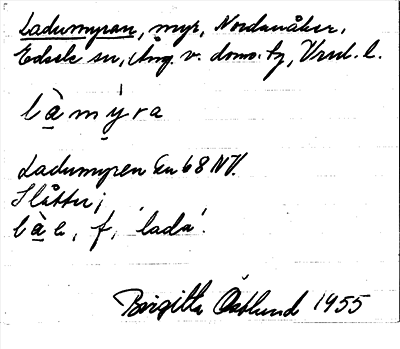 Ladumyran, myr, Nordanåker,
Edsele sn, Ång. v. doms. tg, Vrml. l.
là̱mý̱ra
Ladumyren Eu 68 NV.
Slåtter;
là̱e, f, 'lada'.
Birgitta Östlund 1955